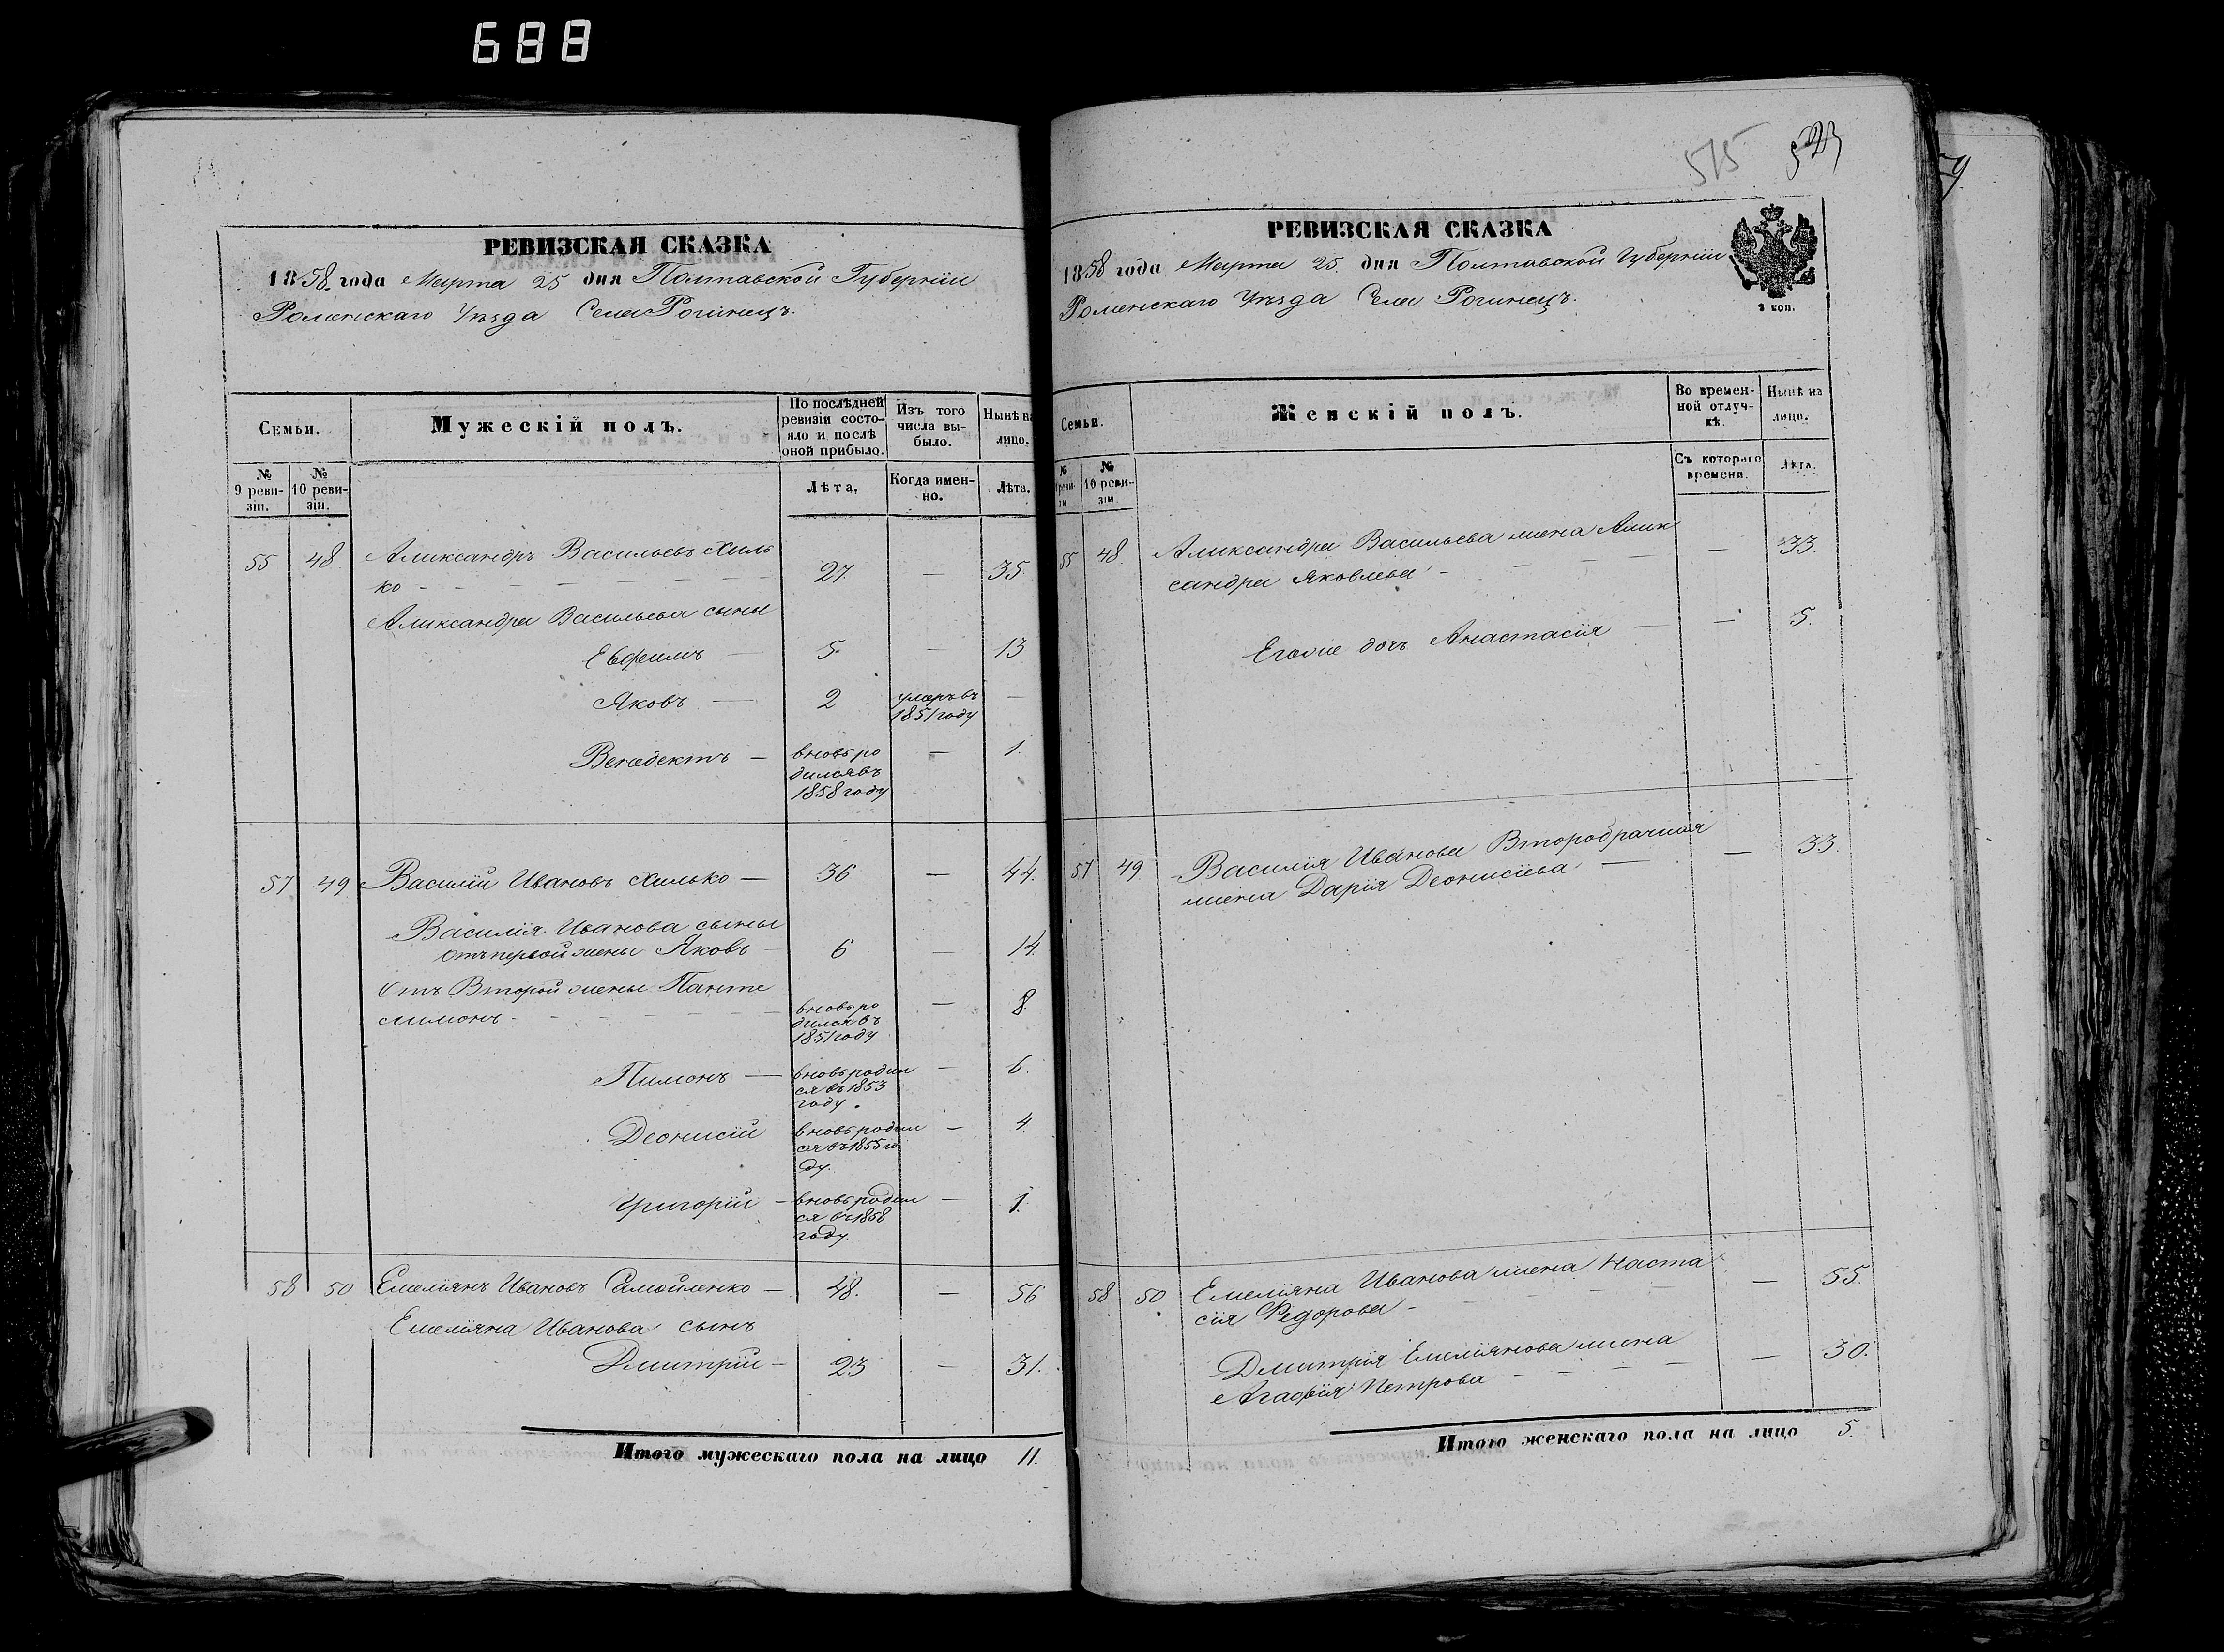 688
РЕВИЗСКАЯ СКАЗКА
1858 года Марта 25 дня Полтавской Губерніи
Роменскаго Уѣзда Села Рогинецъ.
Семьи.
Мужескій полъ.
По послѣдней ревизіи состояло и послѣ оной прибыло.
Изъ того числа выбыло.
Нынѣ на лицо.
№ 9 ревизіи.
№ 10 ревизіи.
Лѣта.
Когда именно.
Лѣта.
55 48 Александръ Васильевъ Хиль
ко - 27. — 35.
Александра Васильева сыны
Евфимъ — 5. — 13
Яковъ — 2 умеръ въ 1851 году —
Венедектъ — вновь ро
дился въ
1858 году — 1.
57 49 Василій Ивановъ Хилько — 36 — 44.
Василія Иванова сыны
отъ первой жены Яковъ — 6 — 14.
Отъ Второй жены Панте
лимонъ - вновь ро
дился въ
1851 году — 8.
Пимонъ — вновь родил
ся въ 1853
году. — 6.
Деонисій вновь родил
ся въ 1855 го
ду. — 4.
Григорій — вновь родил
ся въ 1858
году. — 1.
58 50 Емеліянъ Ивановъ Самойленко — 48. — 56
Емеліяна Иванова сынъ
Дмитрій — 23 — 31.
Итого мужескаго пола на лицо 11.
515 523
РЕВИЗСКАЯ СКАЗКА
1858 года Марта 25. дня Полтавской Губерніи
Роменскаго Уѣзда Села Рогинецъ.
2 коп.
Семьи.
Женскій полъ.
Во временной отлучкѣ.
Нынѣ на лицо.
№ 10 ревизіи
Съ котораго времени.
Лѣта.
55 48. Александра Васильева жена Алек
сандра Яковлева - — 33.
Егоже дочь Анастасія — — 5.
57 49. Василія Иванова Второбрачная
жена Дарія Деонисіева — — 33.
58 50 Емеліяна Иванова жена Наста
сія Федорова - — 55.
Дмитрія Емеліянова жена
Агафія Петрова — 30.
Итого женскаго пола на лицо 5.